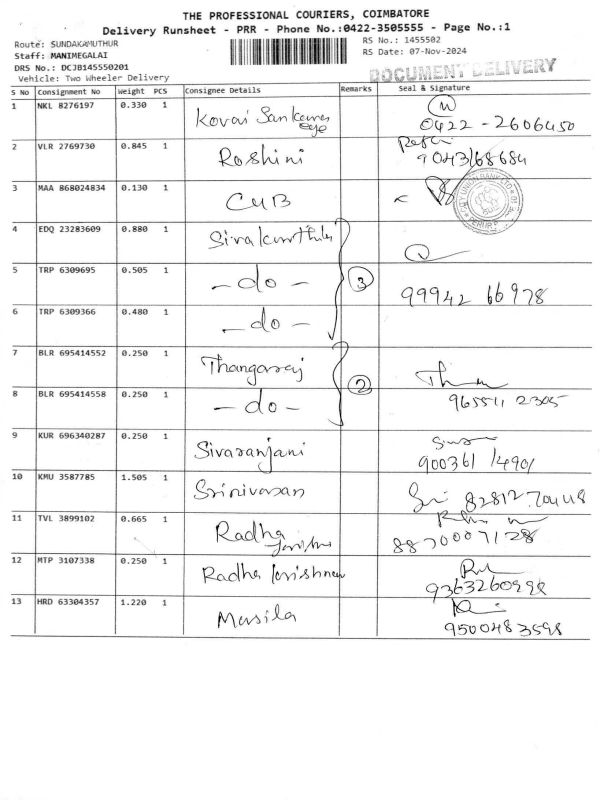 THE PROFESSIONAL COURIERS, COIMBATORE
Delivery Runsheet - PRR - Phone No.:0422-3505555 - Page No.:1
Route: SUNDAKAMUTHUR
Staff: MANIMEGALAI
DRS No.: DCJB145550201
Vehicle: Two Wheeler Delivery
RS No.: 1455502
RS Date: 07-Nov-2024
DOCUMENT DELIVERY
S No Consignment No Weight PCS Consignee Details Remarks Seal & Signature
1 NKL 8276197 0.330 1 Kovai Sankara eye 0422-2606450
2 VLR 2769730 0.845 1 Roshini 9043168684
3 MAA 868024834 0.130 1 CUB
4 EDQ 23283609 0.880 1
5 TRP 6309695 0.505 1 -do- 3 99942 66978
6 TRP 6309366 0.480 1 -do-
7 BLR 695414552 0.250 1 Thangaraj
8 BLR 695414558 0.250 1 -do- 2 965511 2305
9 KUR 696340287 0.250 1 Sivaranjani
10 KMU 3587785 1.505 1 Srinivasan
11 TVL 3899102 0.665 1 Radha 8870007128
12 MTP 3107338 0.250 1 Radha krishnan
13 HRD 63304357 1.220 1 Masila 9500483598